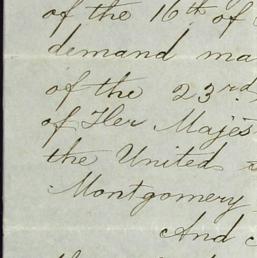 of the 16th of
demand ma
of the 23rd
of Her Majes
the United
Montgomery
And